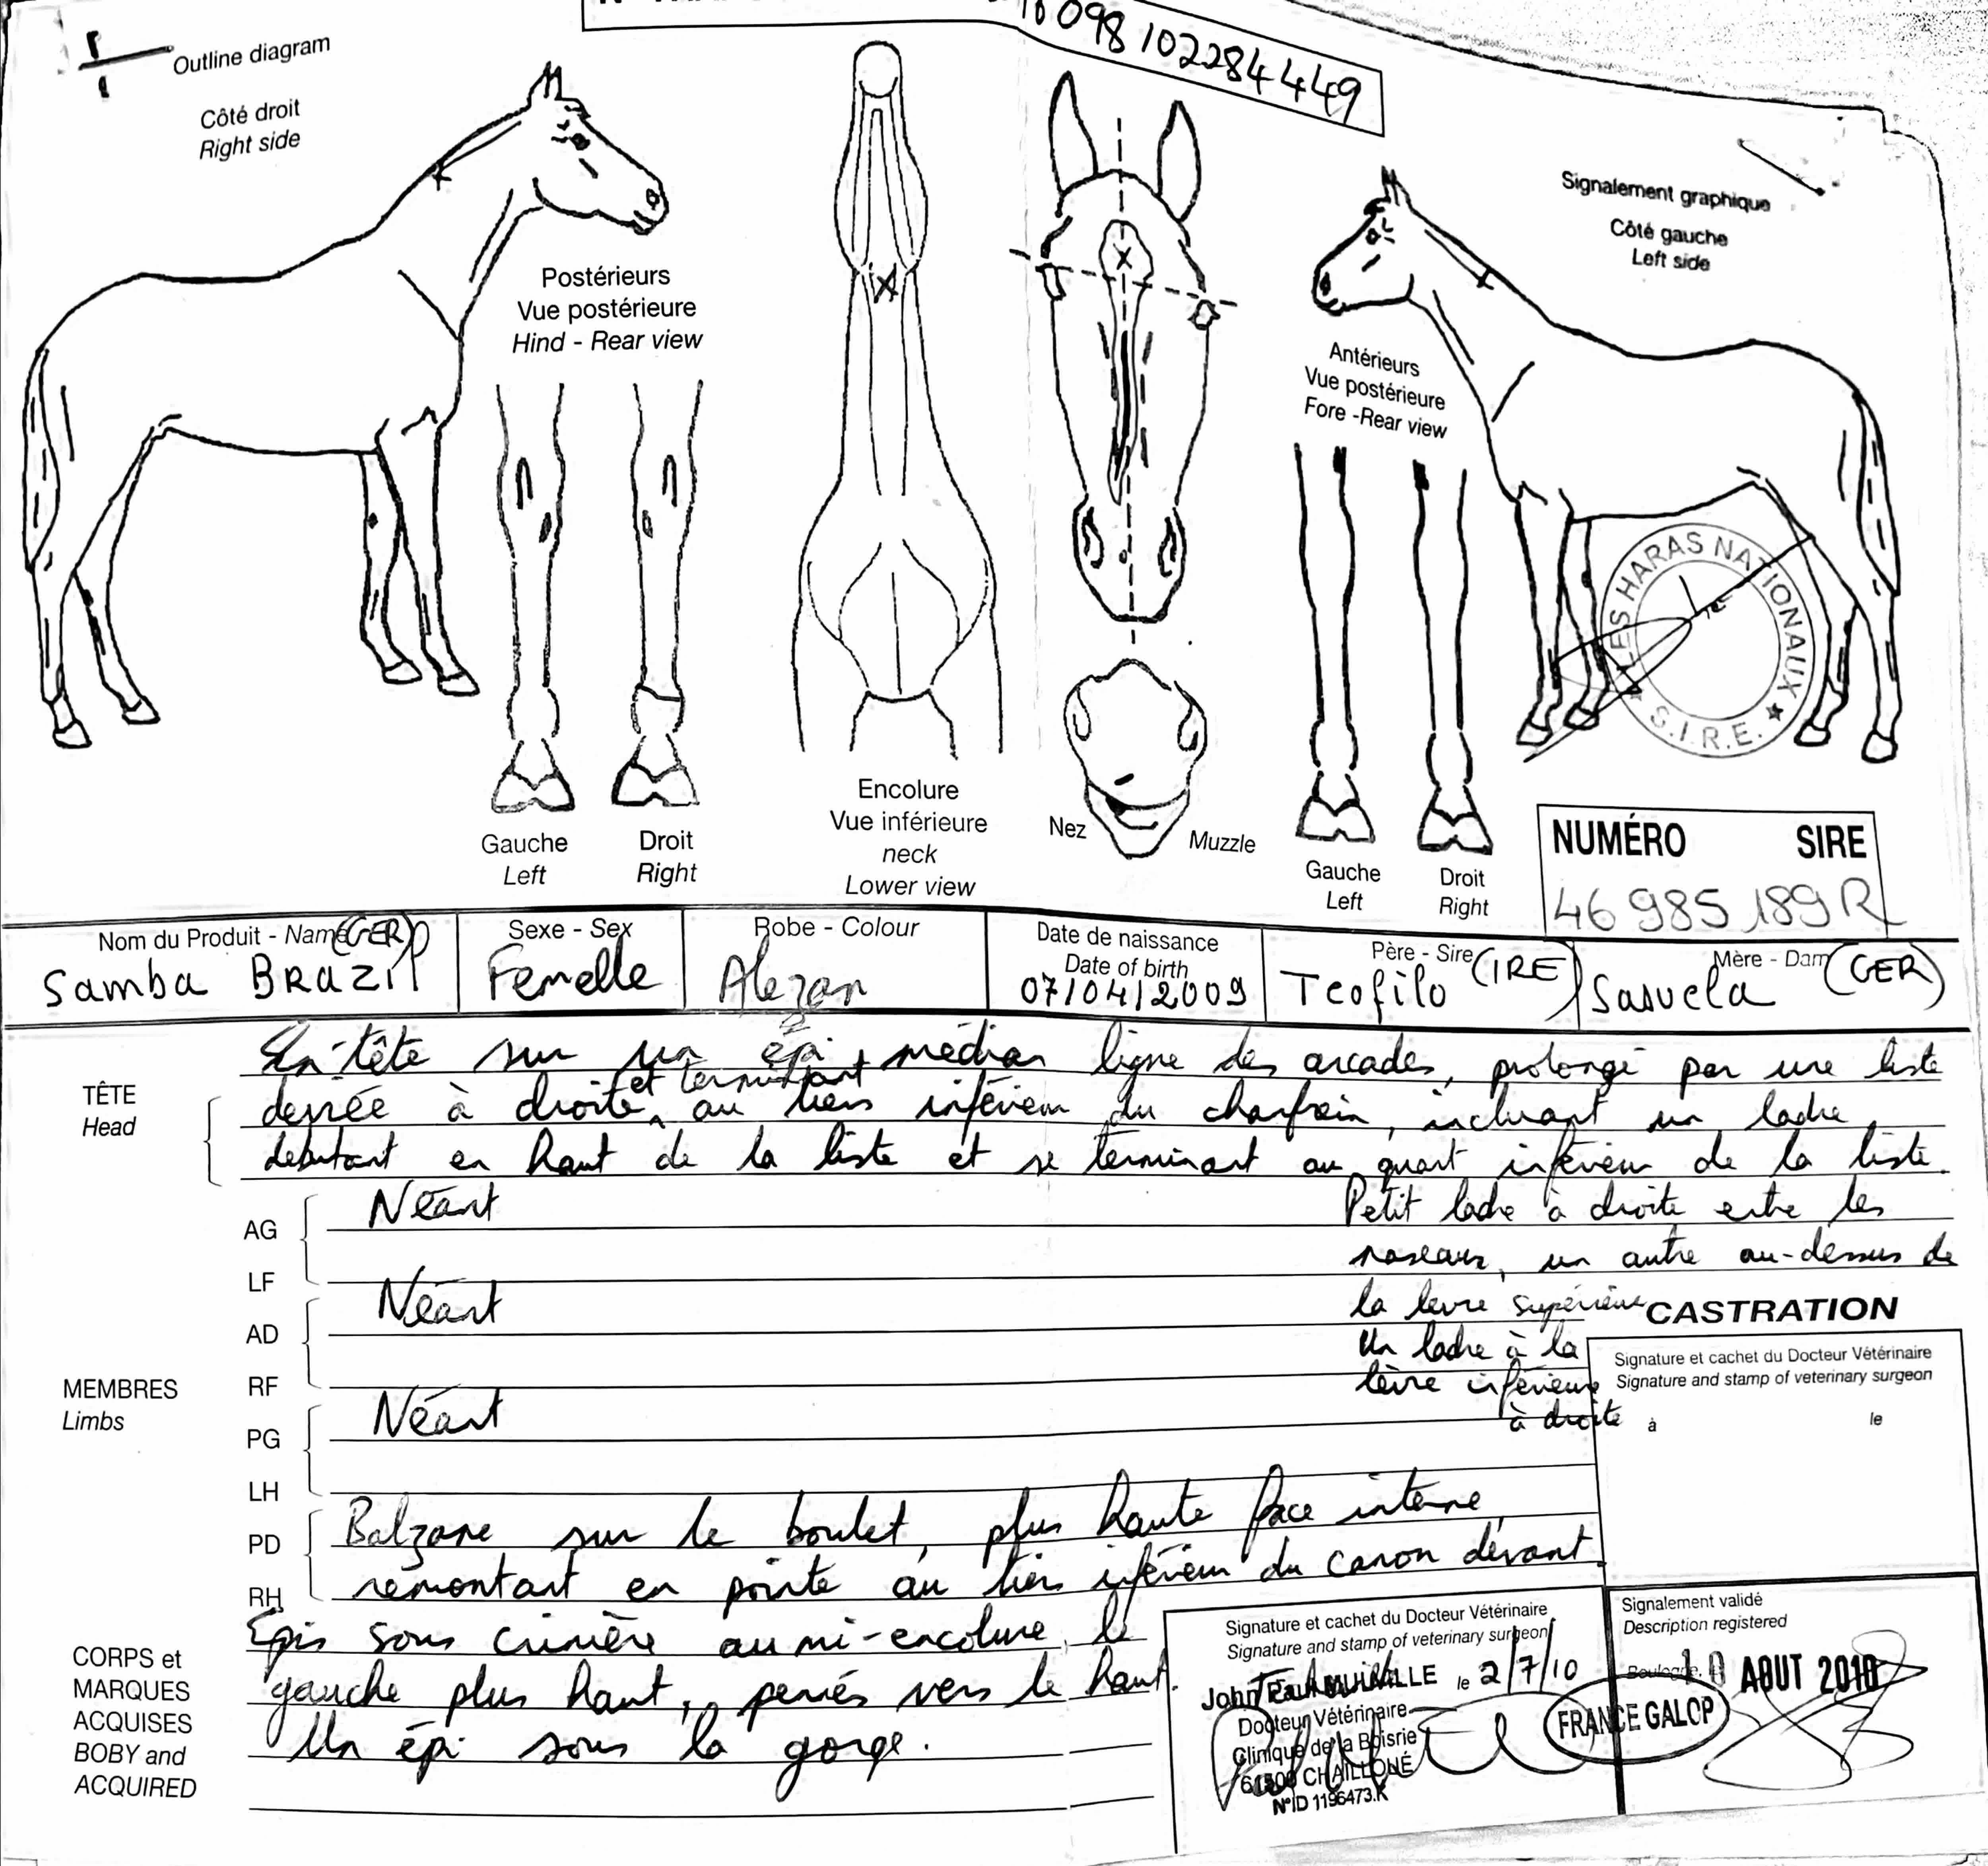 098102284449
Outline diagram
Côté droit
Right side
Signalement graphique
Côté gauche
Left side
Postérieurs
Vue postérieure
Hind - Rear view
Antérieurs
Vue postérieure
Fore -Rear view
LES HARAS NATIONAUX
S.I.R.E.
Encolure
Vue inférieure
neck
Lower view
Nez Muzzle
Gauche
Left
Droit
Right
Gauche
Left
Droit
Right
NUMÉRO SIRE
46 985 189 R
Nom du Produit - Name (GER)
Samba BRAZIL
Sexe - Sex
Femelle
Robe - Colour
Alezan
Date de naissance
Date of birth
07/04/2009
Père - Sire (IRE)
Teofilo
Mère - Dam (GER)
Sasuela
TÊTE
Head
En-tête sur un épi médian ligne des arcades, prolongé par une liste
et terminant
deviée à droite au tiers inférieur du chanfrein, incluant un ladre
debutant en haut de la liste et se terminant au quart inférieur de la liste.
Petit ladre à droite entre les
naseaux, un autre au-dessus de
la levre supérieure
Un ladre à la
lèvre inférieure
à droite
MEMBRES
Limbs
AG Néant
LF
AD Néant
RF
PG Néant
LH
PD Balzane sur le boulet, plus haute face interne,
RH remontant en pointe au tiers inférieur du canon devant.
CASTRATION
Signature et cachet du Docteur Vétérinaire
Signature and stamp of veterinary surgeon
à le
CORPS et
MARQUES
ACQUISES
BOBY and
ACQUIRED
Epis sous crinière au mi-encolure, le
gauche plus haut, pennés vers le haut.
Un épi sous la gorge.
Signature et cachet du Docteur Vétérinaire
Signature and stamp of veterinary surgeon
le 2/7/10
Docteur Vétérinaire
Clinique de la Boisrie
61500 CHAILLOUÉ
N°ID 1196473.K
Signalement validé
Description registered
Boulogne, 10 AOUT 2010
FRANCE GALOP